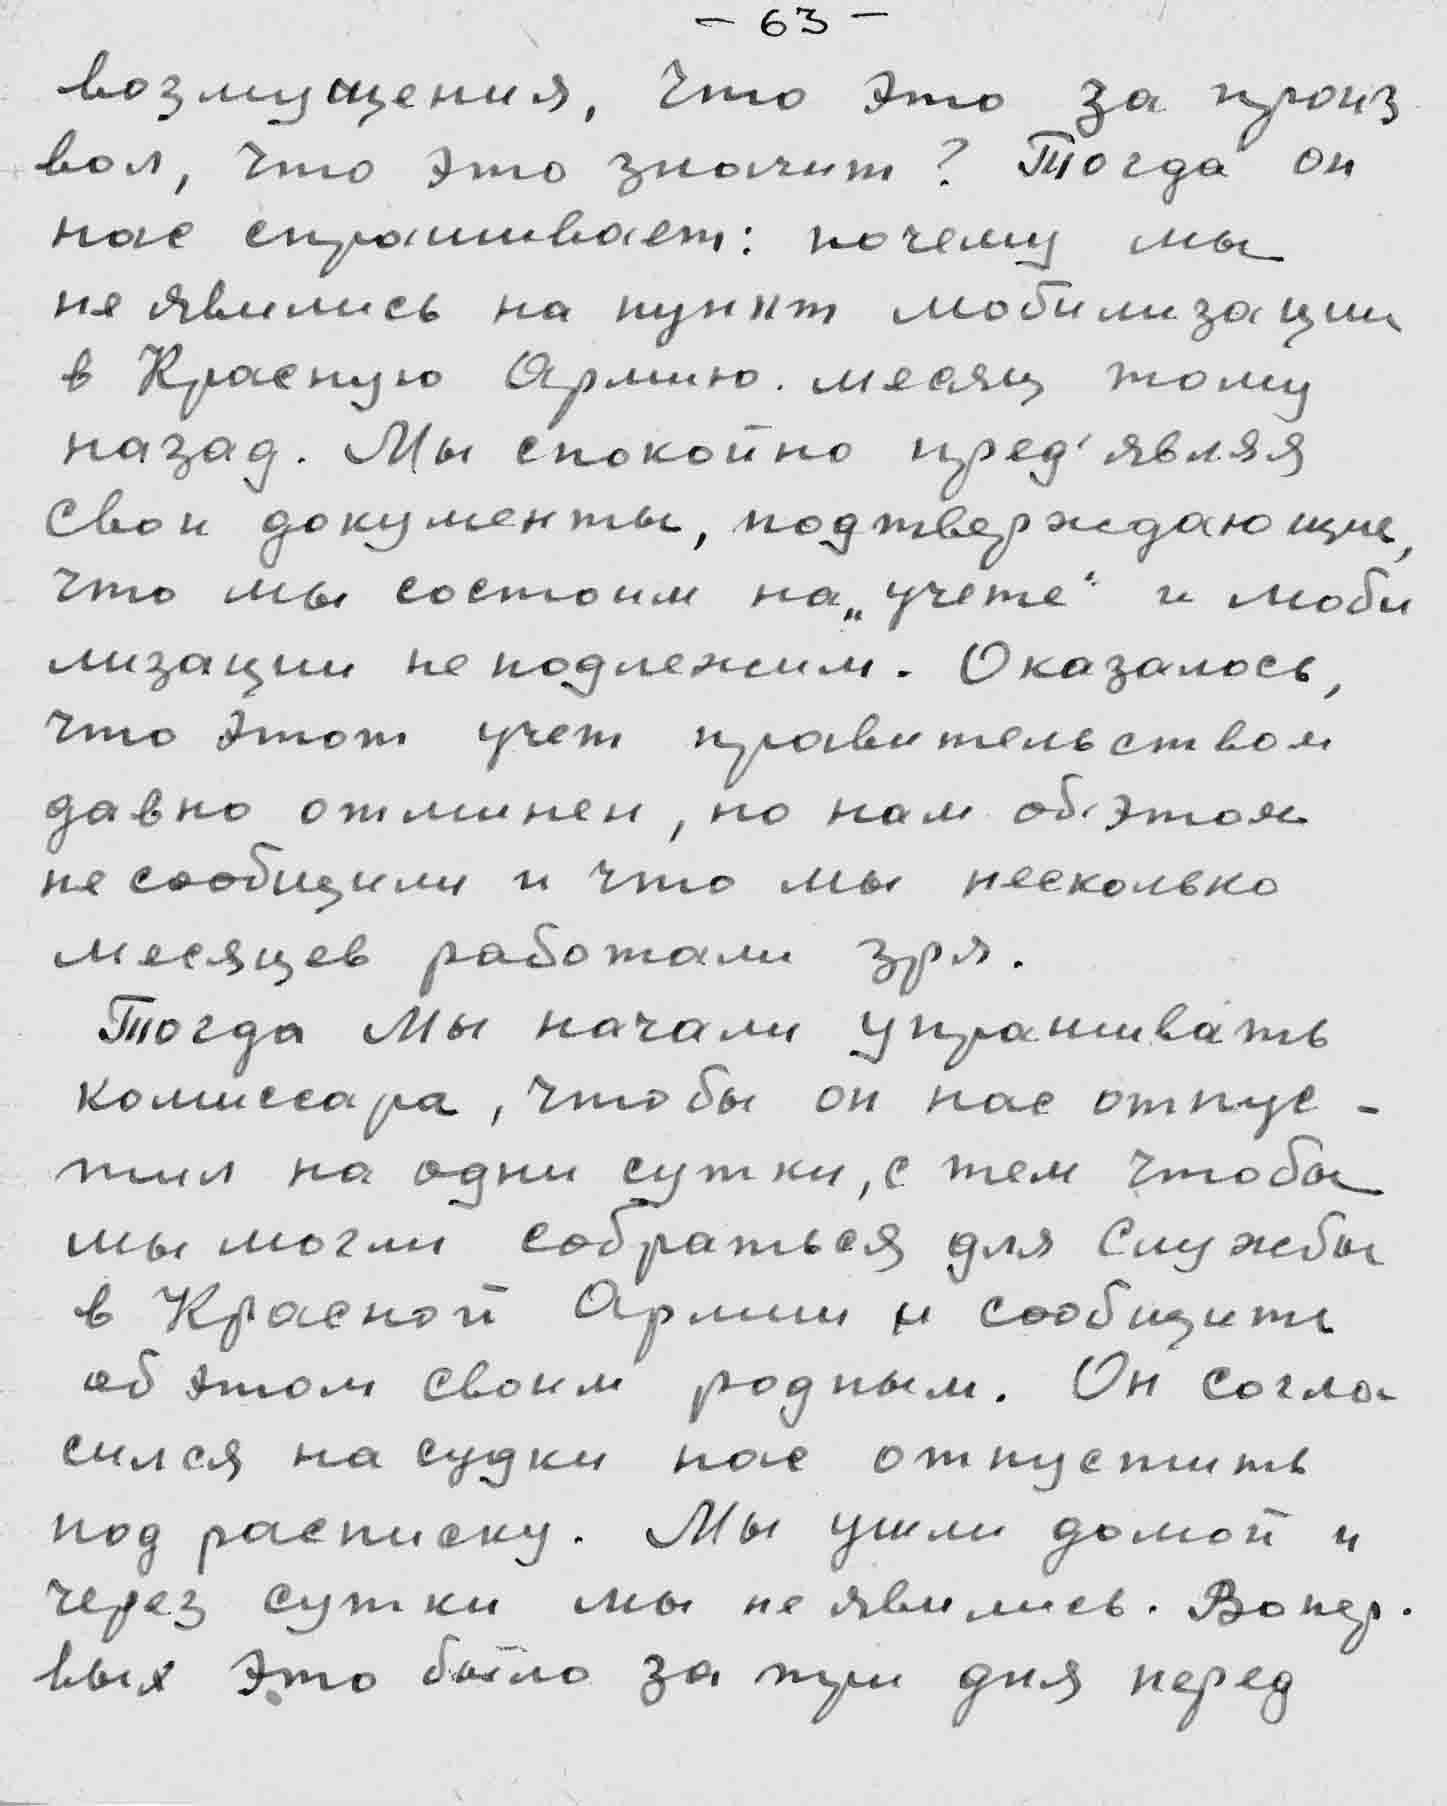 - 63 -
возмущения, что это за произ
вол, что это значит? Тогда он
нас спрашивает: почему мы
не явились на пункт мобилизации
в Красную Армию. месяц тому
назад. Мы спокойно пред'являя
свои документы, подтверждающие,
что мы состоим на „учете“ и моби
лизации не подлежим. Оказалось,
что этот учет правительством
давно отминен, но нам об этом
не сообщили и что мы несколько
месяцев работали зря.
Тогда мы начали упрашивать
комиссара, чтобы он нас отпус-
тил на одни сутки, с тем чтобы
мы могли собраться для службы
в Красной Армии и сообщить
об этом своим родным. Он согла-
сился на судки нас отпустить
под расписку. Мы ушли домой и
через сутки мы не явились. Вопер.
вых это было за три дня перед